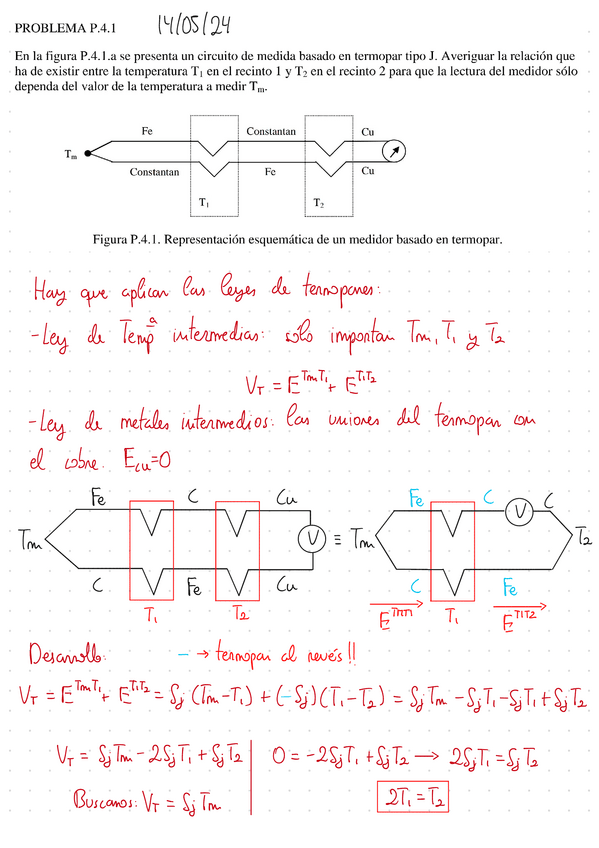 PROBLEMA P.4.1 14/05/24
En la figura P.4.1.a se presenta un circuito de medida basado en termopar tipo J. Averiguar la relación que
ha de existir entre la temperatura T₁ en el recinto 1 y T₂ en el recinto 2 para que la lectura del medidor sólo
dependa del valor de la temperatura a medir Tₘ.
Fe Constantan Cu
Tₘ
Constantan Fe Cu
T₁ T₂
Figura P.4.1. Representación esquemática de un medidor basado en termopar.
Hay que aplicar las leyes de termopares:
-Ley de Tempª intermedias: solo importan Tm, T₁ y T₂
V_T = E^{TmT₁} + E^{T₁T₂}
-Ley de metales intermedios: las uniones del termopar con
el cobre. E_{cu}=0
Fe C Cu Fe C C
Tm V ≡ Tm V T₂
C Fe Cu C Fe
T₁ T₂ E^{TmT₁} T₁ E^{T₁T₂}
Desarrollo: - → termopar al revés!!
V_T = E^{TmT₁} + E^{T₁T₂} = Sj (Tm-T₁) + (-Sj)(T₁-T₂) = Sj Tm - Sj T₁ - Sj T₁ + Sj T₂
V_T = Sj Tm - 2Sj T₁ + Sj T₂ | 0 = -2Sj T₁ + Sj T₂ → 2Sj T₁ = Sj T₂
Buscamos: V_T = Sj Tm 2T₁ = T₂